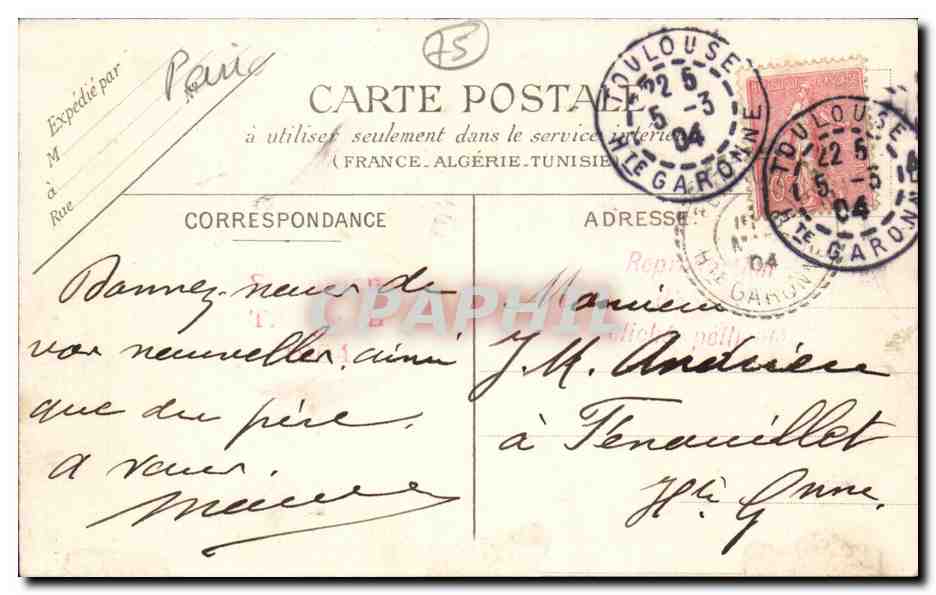 Expédié par
M
à
Rue
Paris
75
CARTE POSTALE
à utiliser seulement dans le service intérieur
(FRANCE-ALGÉRIE-TUNISIE)
TOULOUSE
22 5
5 -3
04
HTE GARONNE
TOULOUSE
22 5
5 -3
04
HTE GARONNE
04
HTE GARONNE
CORRESPONDANCE
ADRESSE
Reproduction
cliché pellicule
CPAPHIL
Donnez-nous de
vos nouvelles, ainsi
que du père.
A vous.
Monsieur
J. M. Andrieu
à Fenouillet
Hte Gnne.